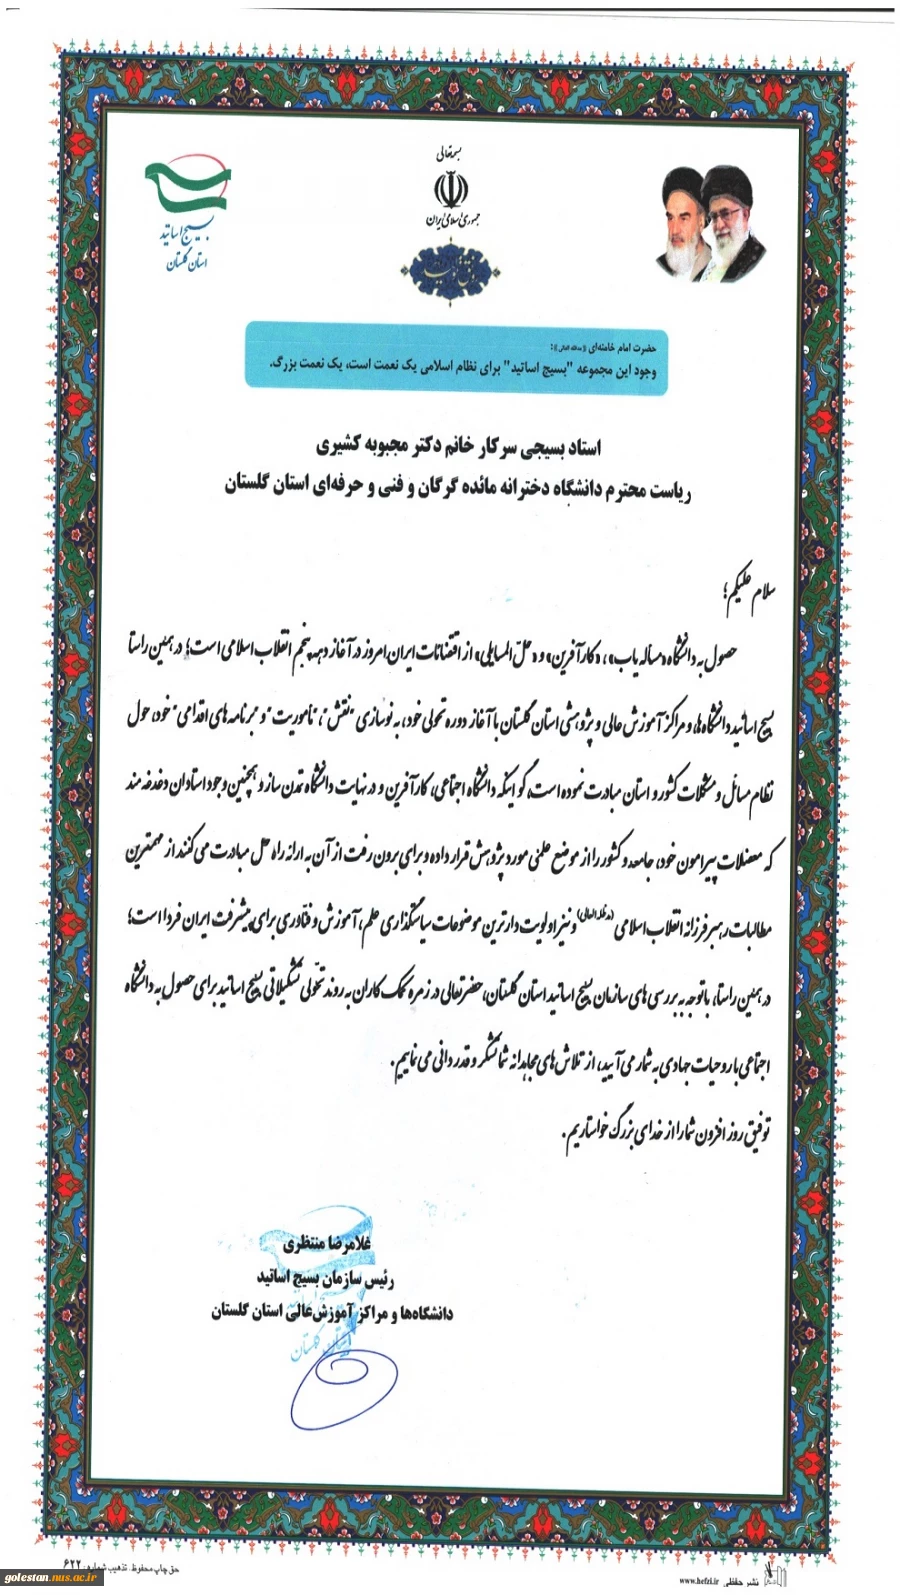 بسمه‌تعالی
جمهوری اسلامی ایران
بسیج اساتید
استان گلستان
حضرت امام خامنه‌ای (مدظله العالی):
وجود این مجموعه "بسیج اساتید" برای نظام اسلامی یک نعمت است، یک نعمت بزرگ.
استاد بسیجی سرکار خانم دکتر محبوبه کشیری
ریاست محترم دانشگاه دخترانه مائده گرگان و فنی و حرفه‌ای استان گلستان
سلام علیکم؛
حصول به دانشگاه «مساله یاب»، «کارآفرین» و «حل المسایلی» از اقتضائات ایران امروز در آغاز دهه پنجم انقلاب اسلامی است؛ در همین راستا
بسیج اساتید دانشگاه ها و مراکز آموزش عالی و پژوهشی استان گلستان با آغاز دوره تحولی خود، به نوسازی "نقش"، "ماموریت" و "برنامه های اقدامی" خود، حول
نظام مسائل و مشکلات کشور و استان مبادرت نموده است، گو اینکه دانشگاه اجتماعی، کارآفرین و در نهایت دانشگاه تمدن ساز و همچنین وجود استادان دغدغه مند
که معضلات پیرامون خود، جامعه و کشور را از موضع علمی مورد پژوهش قرار داده و برای برون رفت از آن به ارائه راه حل مبادرت می کنند از مهمترین
مطالبات رهبر فرزانه انقلاب اسلامی (مدظله العالی) و نیز اولویت دارترین موضوعات سیاستگذاری علم، آموزش و فناوری برای پیشرفت ایران فردا است؛
در همین راستا، با توجه به بررسی های سازمان بسیج اساتید استان گلستان، حضرتعالی در زمره کمک کاران به روند تحوّلی تشکیلاتی بسیج اساتید برای حصول به دانشگاه
اجتماعی با روحیات جهادی به شمار می آیید، از تلاش های مجاهدانه شما تشکر و قدردانی می نماییم.
توفیق روز افزون شما را از خدای بزرگ خواستاریم.
غلامرضا منتظری
رئیس سازمان بسیج اساتید
دانشگاه‌ها و مراکز آموزش‌عالی استان گلستان
استان گلستان
حق چاپ محفوظ. تذهیب شماره: ۶۲۲
نشر حفظی www.hefzi.ir
golestan.nus.ac.ir